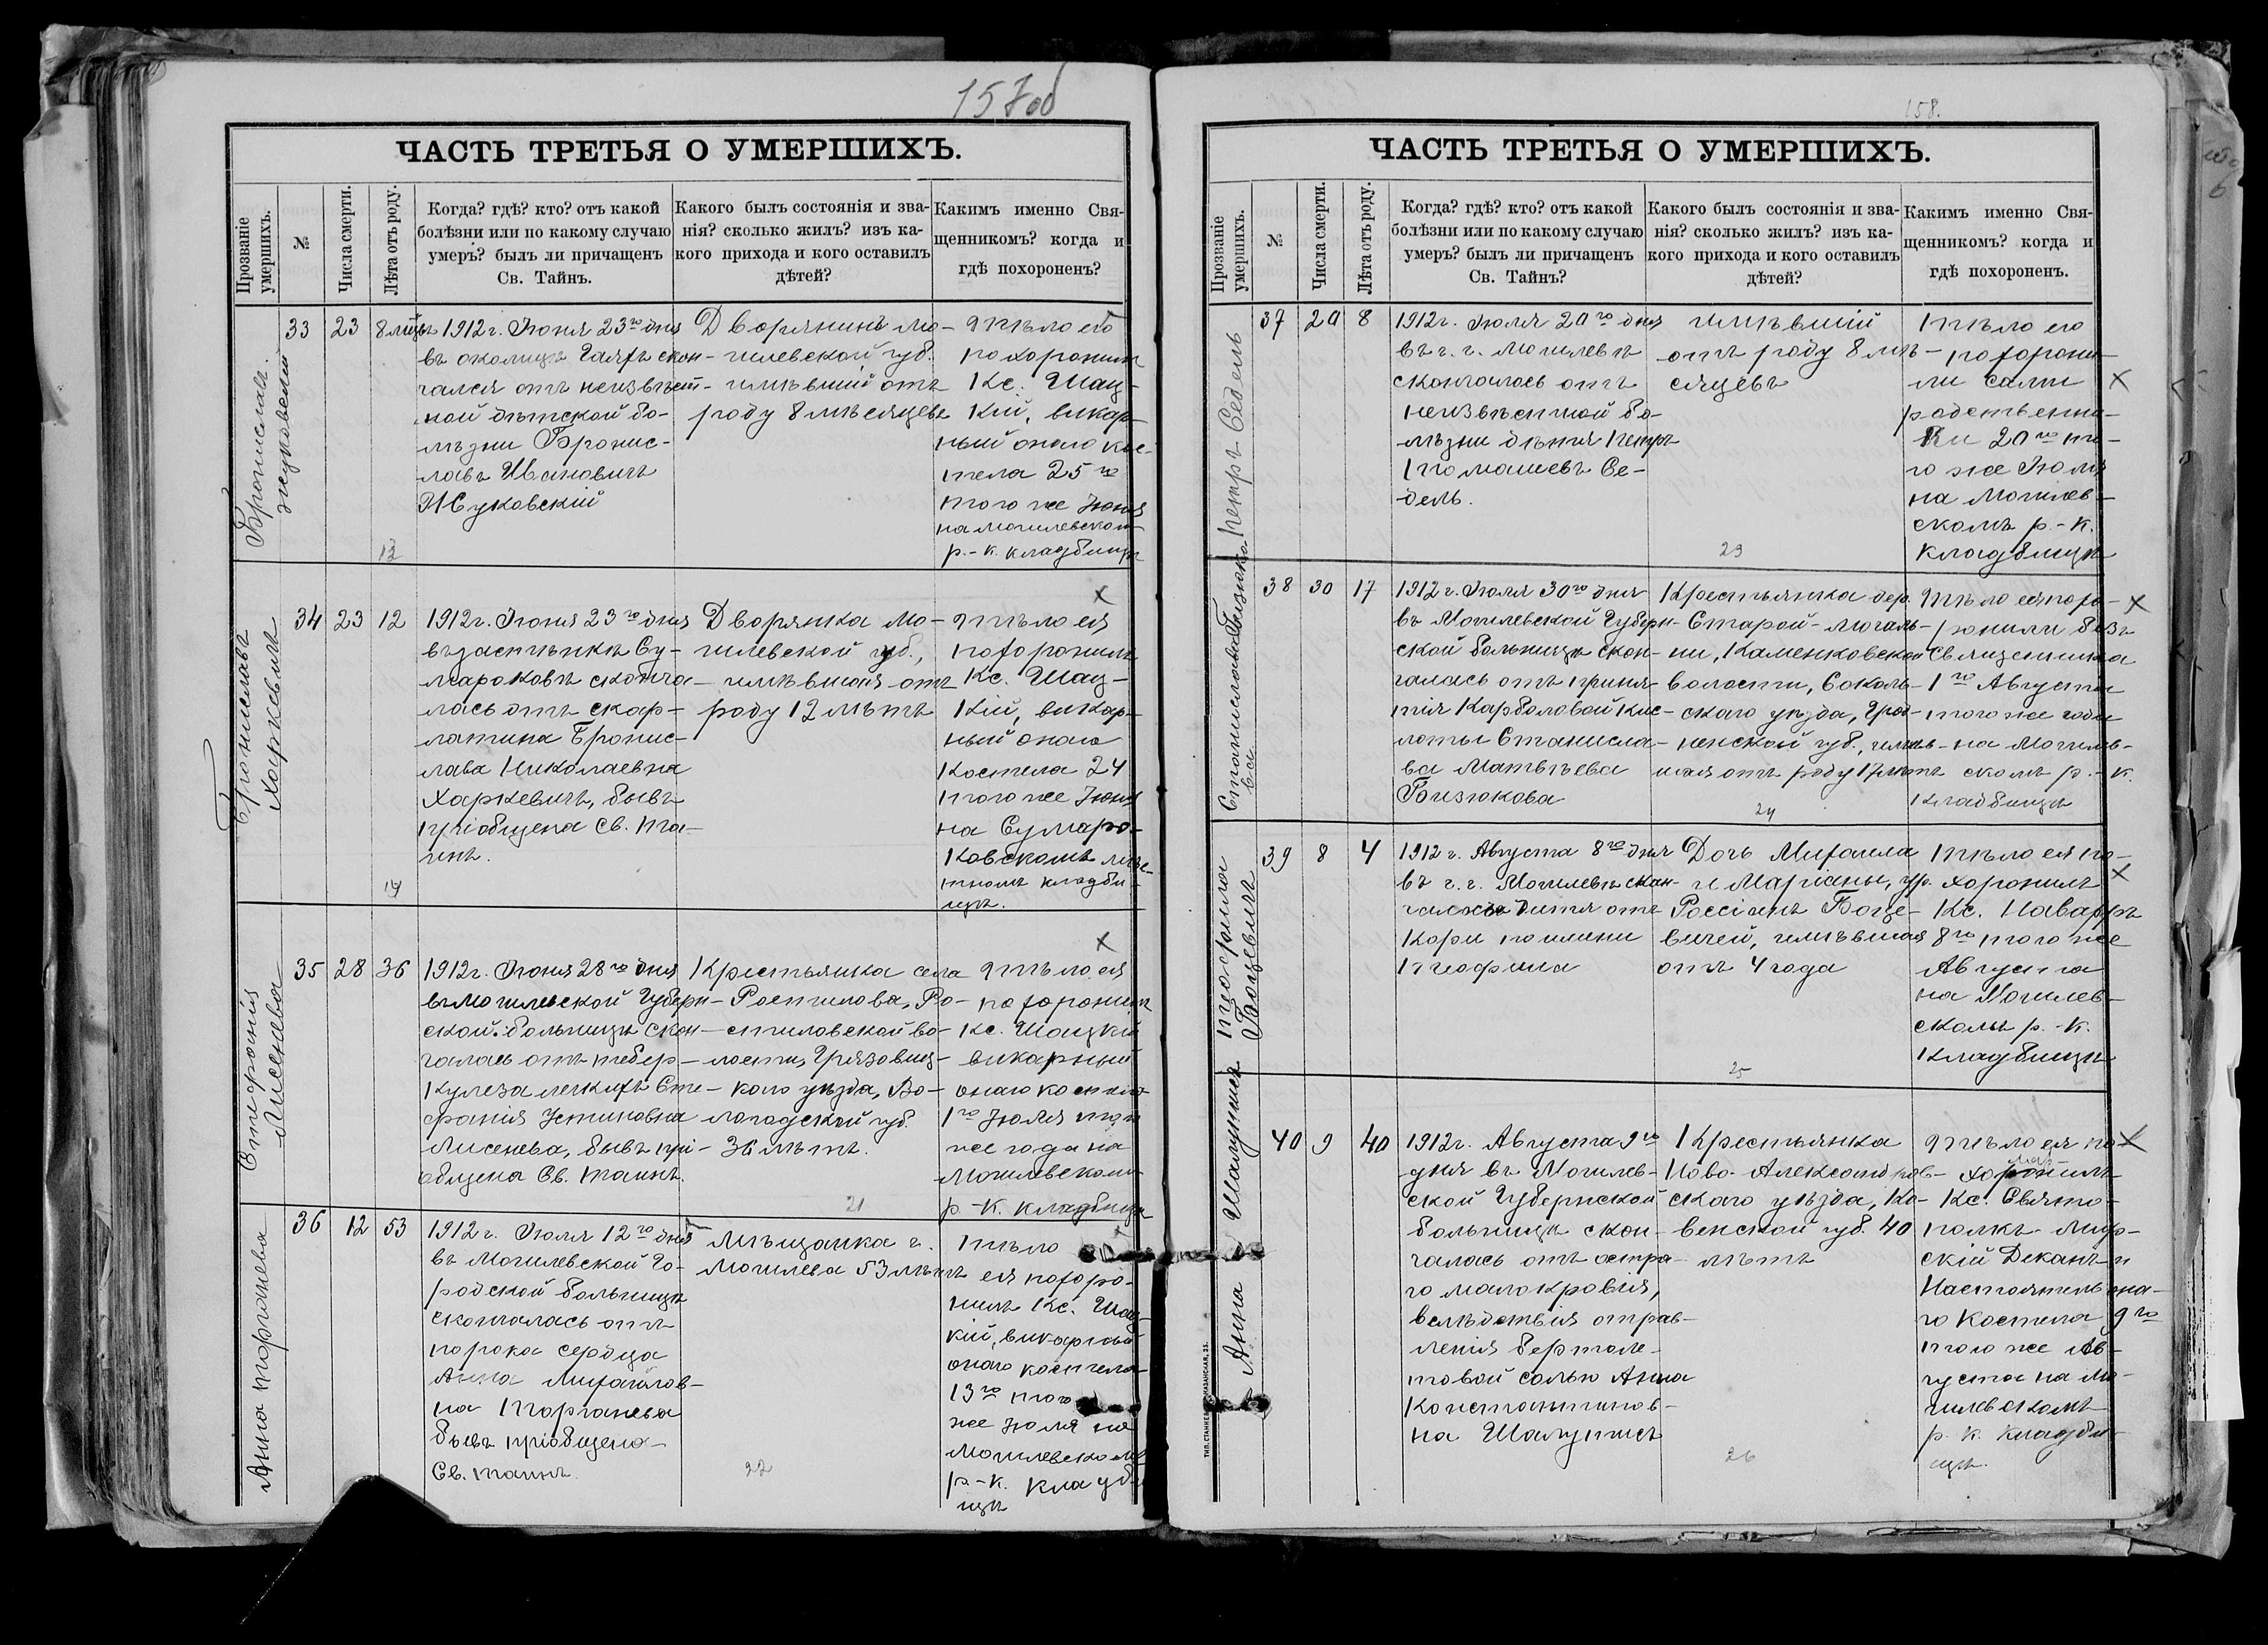 157об
ЧАСТЬ ТРЕТЬЯ О УМЕРШИХЪ.
Прозваніе умершихъ.
№
Числа смерти.
Лѣта отъ роду.
Когда? гдѣ? кто? отъ какой
болѣзни или по какому случаю
умеръ? былъ ли причащенъ
Св. Тайнъ.
Какого былъ состоянія и зва-
нія? сколько жилъ? изъ ка-
кого прихода и кого оставилъ
дѣтей?
Какимъ именно Свя-
щенникомъ? когда и
гдѣ похороненъ?
Брониславъ
Жуковскій
33
23
8 мѣс
1912 г. Іюня 23го дня
въ околицѣ скон-
чался отъ неизвѣст-
ной дѣтской бо-
лѣзни Бронис-
лавъ Ивановичъ
Жуковскій
Дворянинъ Мо-
гилевской губ.
имѣвшій отъ
роду 8 мѣсяцевъ
Тѣло его
похоронилъ
Кс. Шац-
кій, викар-
ный онаго кос-
тела 25го
того же Іюня
на Могилевскомъ
р.-к. кладбищѣ
13
Брониславъ
Харкевичъ
34
23
12
1912 г. Іюня 23го дня
въ застѣнкѣ Су-
мароковѣ сконча-
лась отъ скар-
латина Бронис-
лава Николаевна
Харкевичъ, бывъ
пріобщена Св. Та-
инъ.
Дворянка Мо-
гилевской губ.,
имѣвшая отъ
роду 12 лѣтъ
Тѣло ея
похоронилъ
Кс. Шац-
кій, викар-
ный онаго
Костела 24
того же Іюня
на Сумаро-
ковскомъ мѣс-
тномъ кладби-
щѣ.
Стефанія
Лисенева
35
28
36
1912 г. Іюня 28го дня
въ Могилевской Губерн-
ской больницѣ скон-
чалась отъ тубер-
кулеза легкихъ Сте-
фанія Устиновна
Лисенева, бывъ прі-
общена Св. Таинъ.
Крестьянка села
Ростилова, Ро-
стиловской во-
лости, Грязовец-
каго уѣзда, Во-
логодской губ.
36 лѣтъ.
Тѣло ея
похоронилъ
Кс. Шацкій
викарный
онаго костела
1го Іюля того
же года на
Могилевскомъ
р.-к. кладбищѣ
21
36
12
53
1912 г. Іюля 12го дня
въ Могилевской Го-
родской больницѣ
скончалась отъ
порока сердца
Анна Михайлов-
на
бывъ пріобщена
Св. Таинъ.
Мѣщанка г.
Могилева 53 лѣтъ
Тѣло
ея похоро-
нилъ Кс. Шац-
кій, викарный
онаго костела
13го того
же Іюля на
Могилевскомъ
р.-к. кладби-
щѣ
22
158.
ЧАСТЬ ТРЕТЬЯ О УМЕРШИХЪ.
Прозваніе умершихъ.
№
Числа смерти.
Лѣта отъ роду.
Когда? гдѣ? кто? отъ какой
болѣзни или по какому случаю
умеръ? былъ ли причащенъ
Св. Тайнъ?
Какого былъ состоянія и зва-
нія? сколько жилъ? изъ ка-
кого прихода и кого оставилъ
дѣтей?
Какимъ именно Свя-
щенникомъ? когда и
гдѣ похороненъ.
Петръ Седель
37
20
8
1912 г. Іюля 20го дня
въ г. г. Могилевѣ
скончалось отъ
неизвѣстной бо-
лѣзни дитя Петръ
Томашевъ Се-
дель.
имѣвшій
отъ роду 8 мѣ-
сяцевъ
Тѣло его
похорони-
ли сами
родственни-
ки 20го то-
го же Іюля
на Могилев-
скомъ р.-к.
кладбищѣ
23
Станислава Бизюко-
ва
38
30
17
1912 г. Іюля 30го дня
въ Могилевской Губерн-
ской больницѣ скон-
чалась отъ приня-
тія Карболовой кис-
лоты Станисла-
ва Матвѣева
Бизюкова
Крестьянка дер.
Каменковской
волости, Соколь-
скаго уѣзда, Грод-
ненской губ., имѣв-
шая отъ роду 17 лѣтъ
Тѣло ея похо-
ронили безъ
Священника
1го Августа
того же года
на Могилев-
скомъ р.-к.
кладбищѣ
24
Теофила
39
8
4
1912 г. Августа 8го дня
въ г. г. Могилевѣ скон-
чалось дитя отъ
Кори по имени
Теофила
Дочь Михаила
и Маріаны, ур.
имѣвшая
отъ 4 года
Тѣло ея по-
хоронилъ
Кс.
8го того же
Августа
на Могилев-
скомъ р.-к.
кладбищѣ
25
Анна
40
9
40
1912 г. Августа 9го
дня въ Могилев-
ской Губернской
больницѣ скон-
чалась отъ остра-
го малокровія,
вслѣдствія отрав-
ленія бертоле-
товой солью Анна
Константинов-
на
Крестьянка
Ново-Александров-
скаго уѣзда, Ко-
венской губ. 40
лѣтъ
Тѣло ея по-
хоронилъ
Кс. Свято-
полкъ-Мир-
скій Деканъ и
Настоятель она-
го Костела 9го
того же Ав-
густа на Мо-
гилевскомъ
р. к. кладби-
щѣ.
26